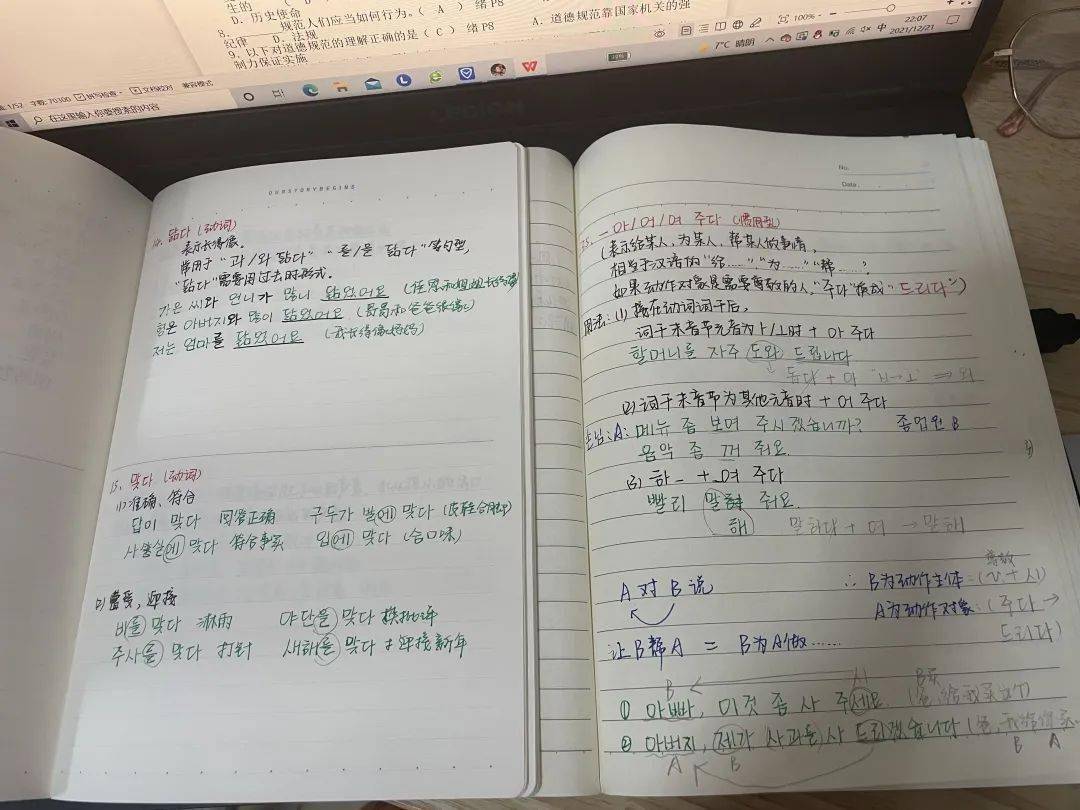 D. 历史使命
8. 规范人们应当如何行为。( A ) 绪P8
纪律 D. 法规 A. 道德规范靠国家机关的强
9. 以下对道德规范的理解正确的是 ( C ) 绪P8
制力保证实施
字数: 70300 拼写检查 文档校对 兼容模式
100%
在这里输入你要搜索的内容
7°C 晴朗
中
22:07
2021/12/21
OURSTORYBEGINS
14. 닮다 (动词)
表示长得像。
常用于 "과/와 닮다" "를/을 닮다" 等句型,
"닮다"需要用过去时形式.
가은 씨와 언니가 많이 닮았어요
형은 아버지와 많이 닮았어요 (哥哥和爸爸很像)
저는 엄마를 닮았어요 (我长得像妈妈)
15. 맞다 (动词)
(1) 准确、符合
답이 맞다 回答正确 구두가 발에 맞다 (皮鞋合脚)
사실에 맞다 符合事实 입에 맞다 (合口味)
(2) 遭受, 迎接
비를 맞다 淋雨 야단을 맞다 挨批评
주사를 맞다 打针 새해를 맞다 迎接新年
No.
Date
25. -아/어/여 주다 (惯用型)
(表示给某人, 为某人, 帮某人做事情,
相当于汉语的"给……", "为……" "帮……".
如果动作对象是需要尊敬的人, "주다"换成"드리다")
用法: (1) 接在动词词干后,
词干末音节元音为ㅏ/ㅗ时 + 아 주다
할머니를 자주 도와 드립니다
돕다 + 아 "ㅂ→ㅗ" ⇒ 와
(2) 词干末音节为其他元音时 + 어 주다
A: 메뉴 좀 보여 주시겠습니까? 종업원 B
음악 좀 꺼 줘요.
(3) 하_ + _여 주다
빨리 말해 줘요.
해 말하다 + 여 → 말해
A 对 B 说
∴ B为动作主体 = (v. + 시)
尊敬
A为动作对象: (주다 →
드리다)
让B帮A = B为A做……
B 시 B买
① 아빠, 이것 좀 사 주세요. (爸, 给我买这个)
② 아버지, 제가 사과를 사 드리겠습니다
A B B A